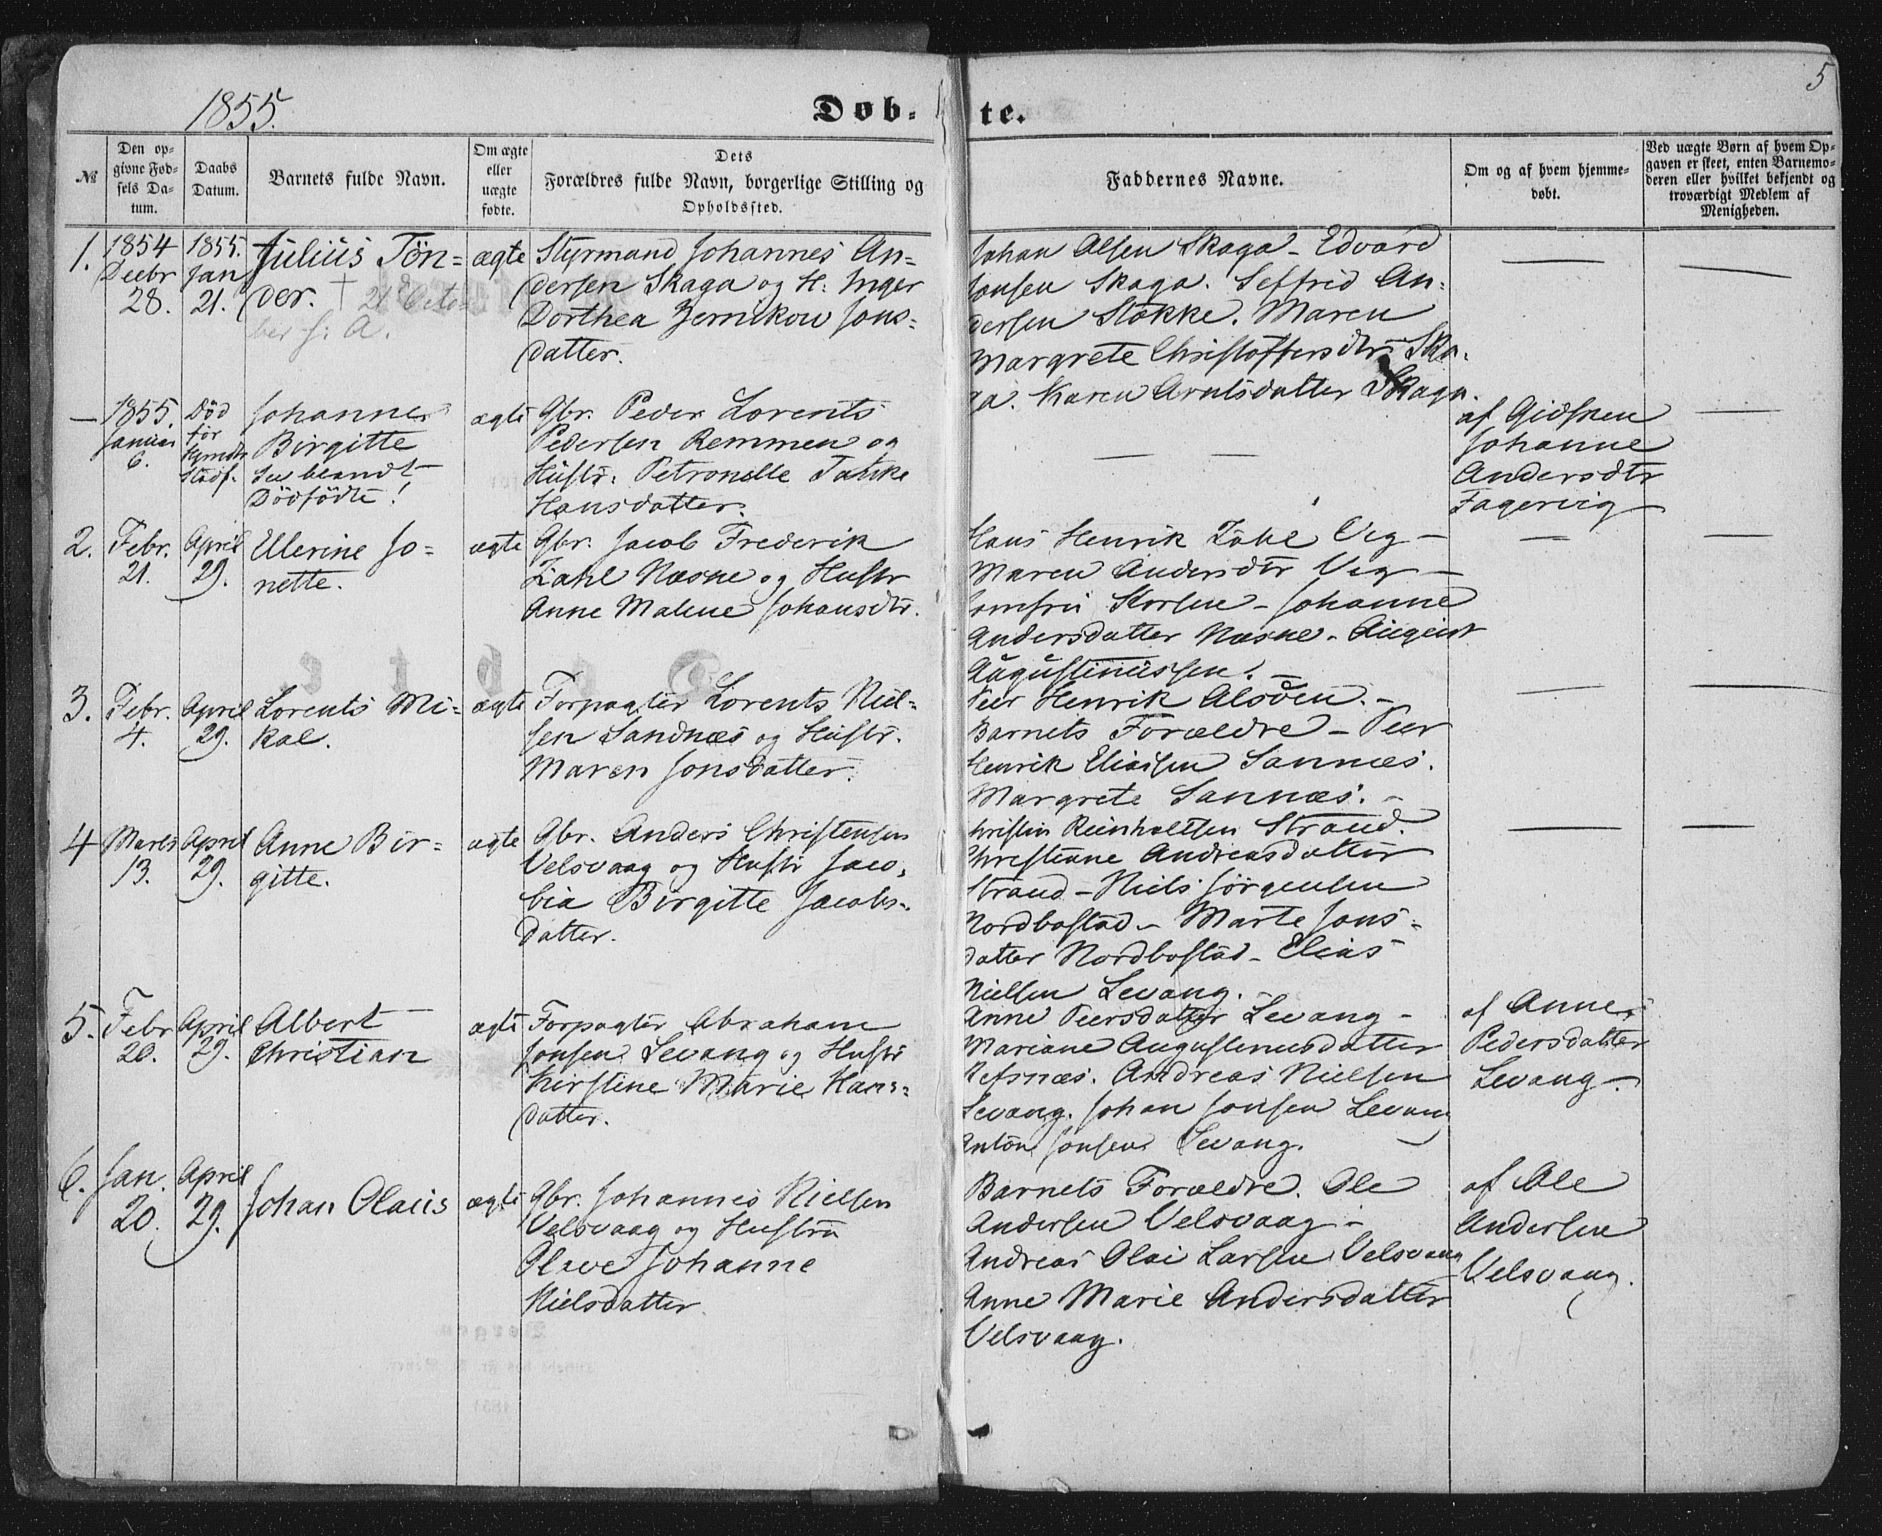 1855.
Døb-
te.
5
№
Den op-
givne Fød-
sels Da-
tum.
Daabs
Datum.
Barnets fulde Navn.
Om ægte
eller
uægte
fødte.
Dets
Forældres fulde Navn, borgerlige Stilling og
Opholdssted.
Faddernes Navne.
Om og af hvem hjemme-
døbt.
Ved uægte Børn af hvem Op-
gaven er skeet, enten Barnemo-
deren eller hvilket bekjendt og
troværdigt Medlem af
Menigheden.
1.
1854
Decbr
28.
1855.
Jan
21.
Julius Tön-
der. † 21 Octo-
ber s: A.
ægte
Styrmand Johannes An-
dersen Skaga og H. Inger
Dorthea Zernikow Jons-
datter.
Johan Olsen Skaga - Edvard
Jonsen Skaga. Seffrid An-
dersen Stokke. Maren
Margrete Christoffersdtr Ska-
ga. Karen Arntsdatter Skaga.
—
1855.
Januar
6.
Död
för
Hjemdb
Stadf.
Johanne
Birgitte
See blandt
Dödfödte!
ægte
Gbr. Peder Lorents
Pedersen Remmen og
Hustr. Petronelle Tanke
Hansdatter.
af Gidsken
Johanne
Andersdtr
Fagervig
2.
Febr.
21.
April
29.
Ellerine Jo-
nette.
ægte
Gbr. Jacob Frederik
Zahl Næsne og Hustr
Anne Malene Johansdtr.
Hans Henrik Zahl Vig -
Maren Andersdtr Vig -
Jomfru Korsen - Johanne
Andersdatter Næsne - August
Augustinussen. -
3.
Febr.
4.
April
29.
Lorents Mi-
kal.
ægte
Forpagter Lorents Niel-
sen Sandnæs og Hustr.
Maren Jonsdatter.
Peer Henrik Alsöen. -
Barnets Forældre - Peer
Henrik Eliassen Sannæs.
Margrete Sannæs. -
4
Marts
13.
April
29.
Anne Bir-
gitte.
ægte
Gbr. Anders Christensen
Velsvaag og Hustr Jaco-
bia Birgitte Jacobs-
datter.
Christen Reinholtsen Strand.
Christianne Andreasdatter
Strand - Niels Jörgensen
Nordbostad - Marte Jons-
datter Nordbostad - Elias
Nielsen Levang.
5.
Febr
20.
April
29.
Albert
Christian
ægte
Forpagter Abraham
Jonsen Levang og Hustr
Kirstine Marie Hans-
datter.
Anne Peersdatter Levang -
Mariane Augustinusdatter
Refsnæs. Andreas Nielsen
Levang. Johan Jonsen Levang
Anton Jonsen Levang.
af Anne
Pedersdatter
Levang -
6.
Jan.
20.
April
29.
Johan Olaus
ægte
Gbr. Johannes Nielsen
Velsvaag og Hustru
Olave Johanne
Nielsdatter.
Barnets Forældre. Ole
Andersen Velsvaag -
Andreas Olai Larsen Velsvaag
Anne Marie Andersdatter
Velsvaag.
af Ole
Andersen
Velsvaag.